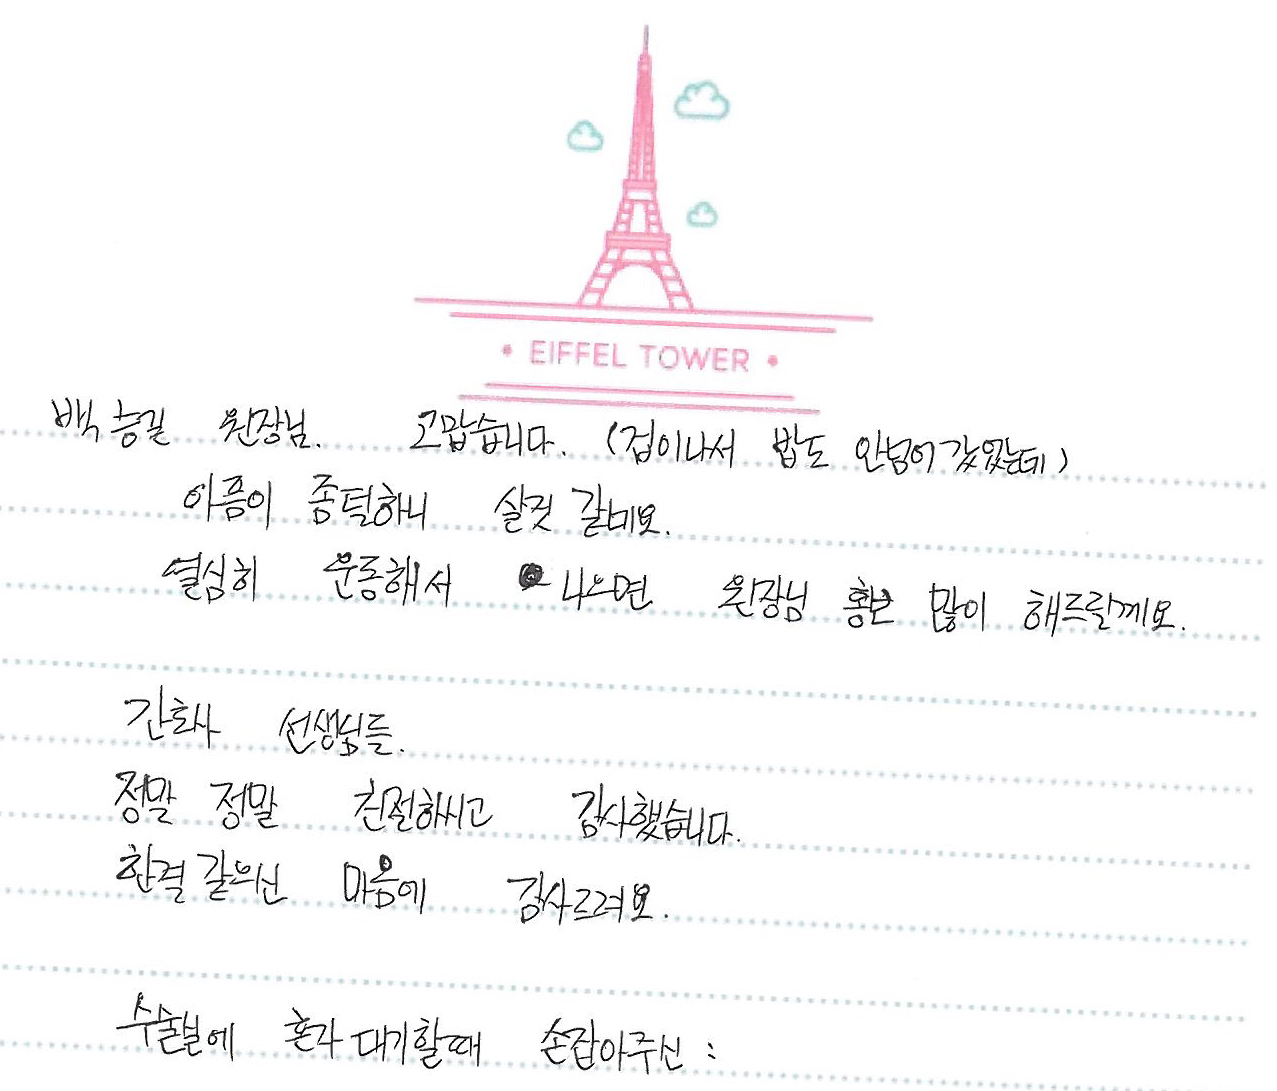 EIFFEL TOWER
백승길 원장님. 고맙습니다. (겁이나서 밥도 안넘어 갔었는데)
아픔이 종덜하니 살것 같네요.
열심히 운동해서 나으면 원장님 홍보 많이 해드릴께요.
간호사 선생님들.
정말 정말 친절하시고 감사했습니다.
한결 같으신 마음에 감사드려요.
수술실에 혼자 대기할때 손잡아주신 :